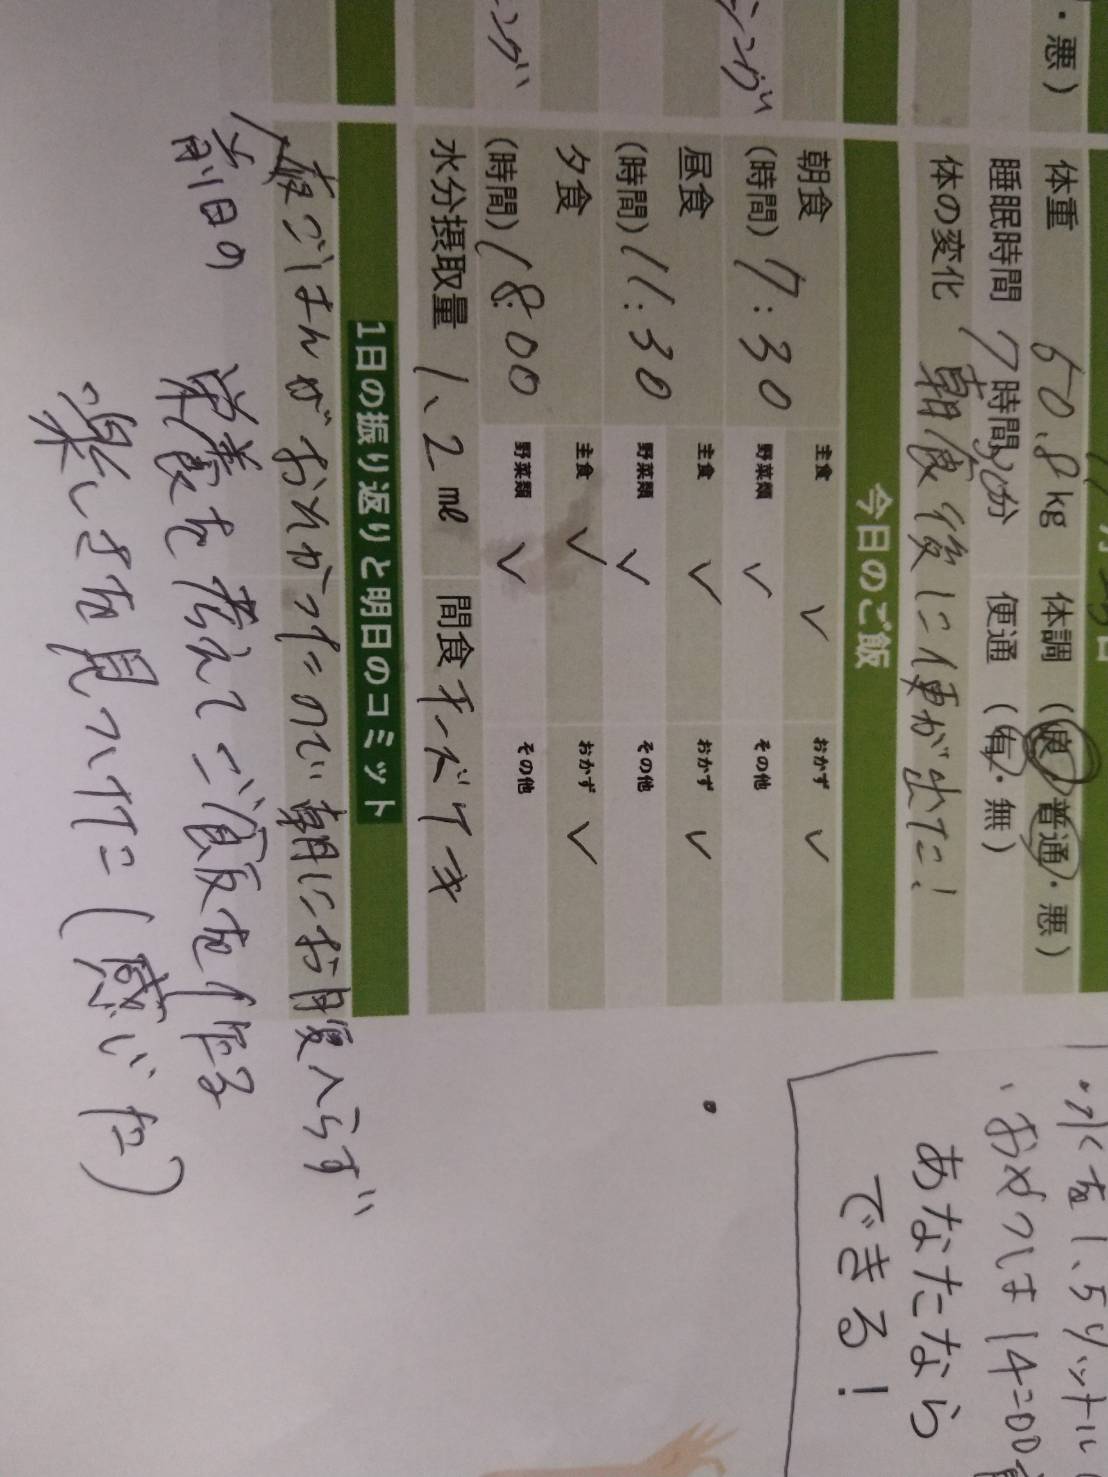 ・悪）
体重 60.8kg 体調（良・普通・悪）
睡眠時間 7時間 分 便通（有・無）
体の変化 朝食後に便が出た！
今日のご飯
朝食 主食 ✓ おかず ✓
（時間）7:30 野菜類 ✓ その他
昼食 主食 ✓ おかず ✓
（時間）11:30 野菜類 ✓ その他
夕食 主食 ✓ おかず ✓
（時間）18:00 野菜類 ✓ その他
水分摂取量 1、2 ml 間食 チーズケーキ
1日の振り返りと明日のコミット
夜ごはんがおそかったので朝にお腹へらず
前日の 栄養を考えてご飯を作る
楽しさを見つけた（感じた）
・水を1、5リットル
、おやつは14:00
あなたなら
できる！